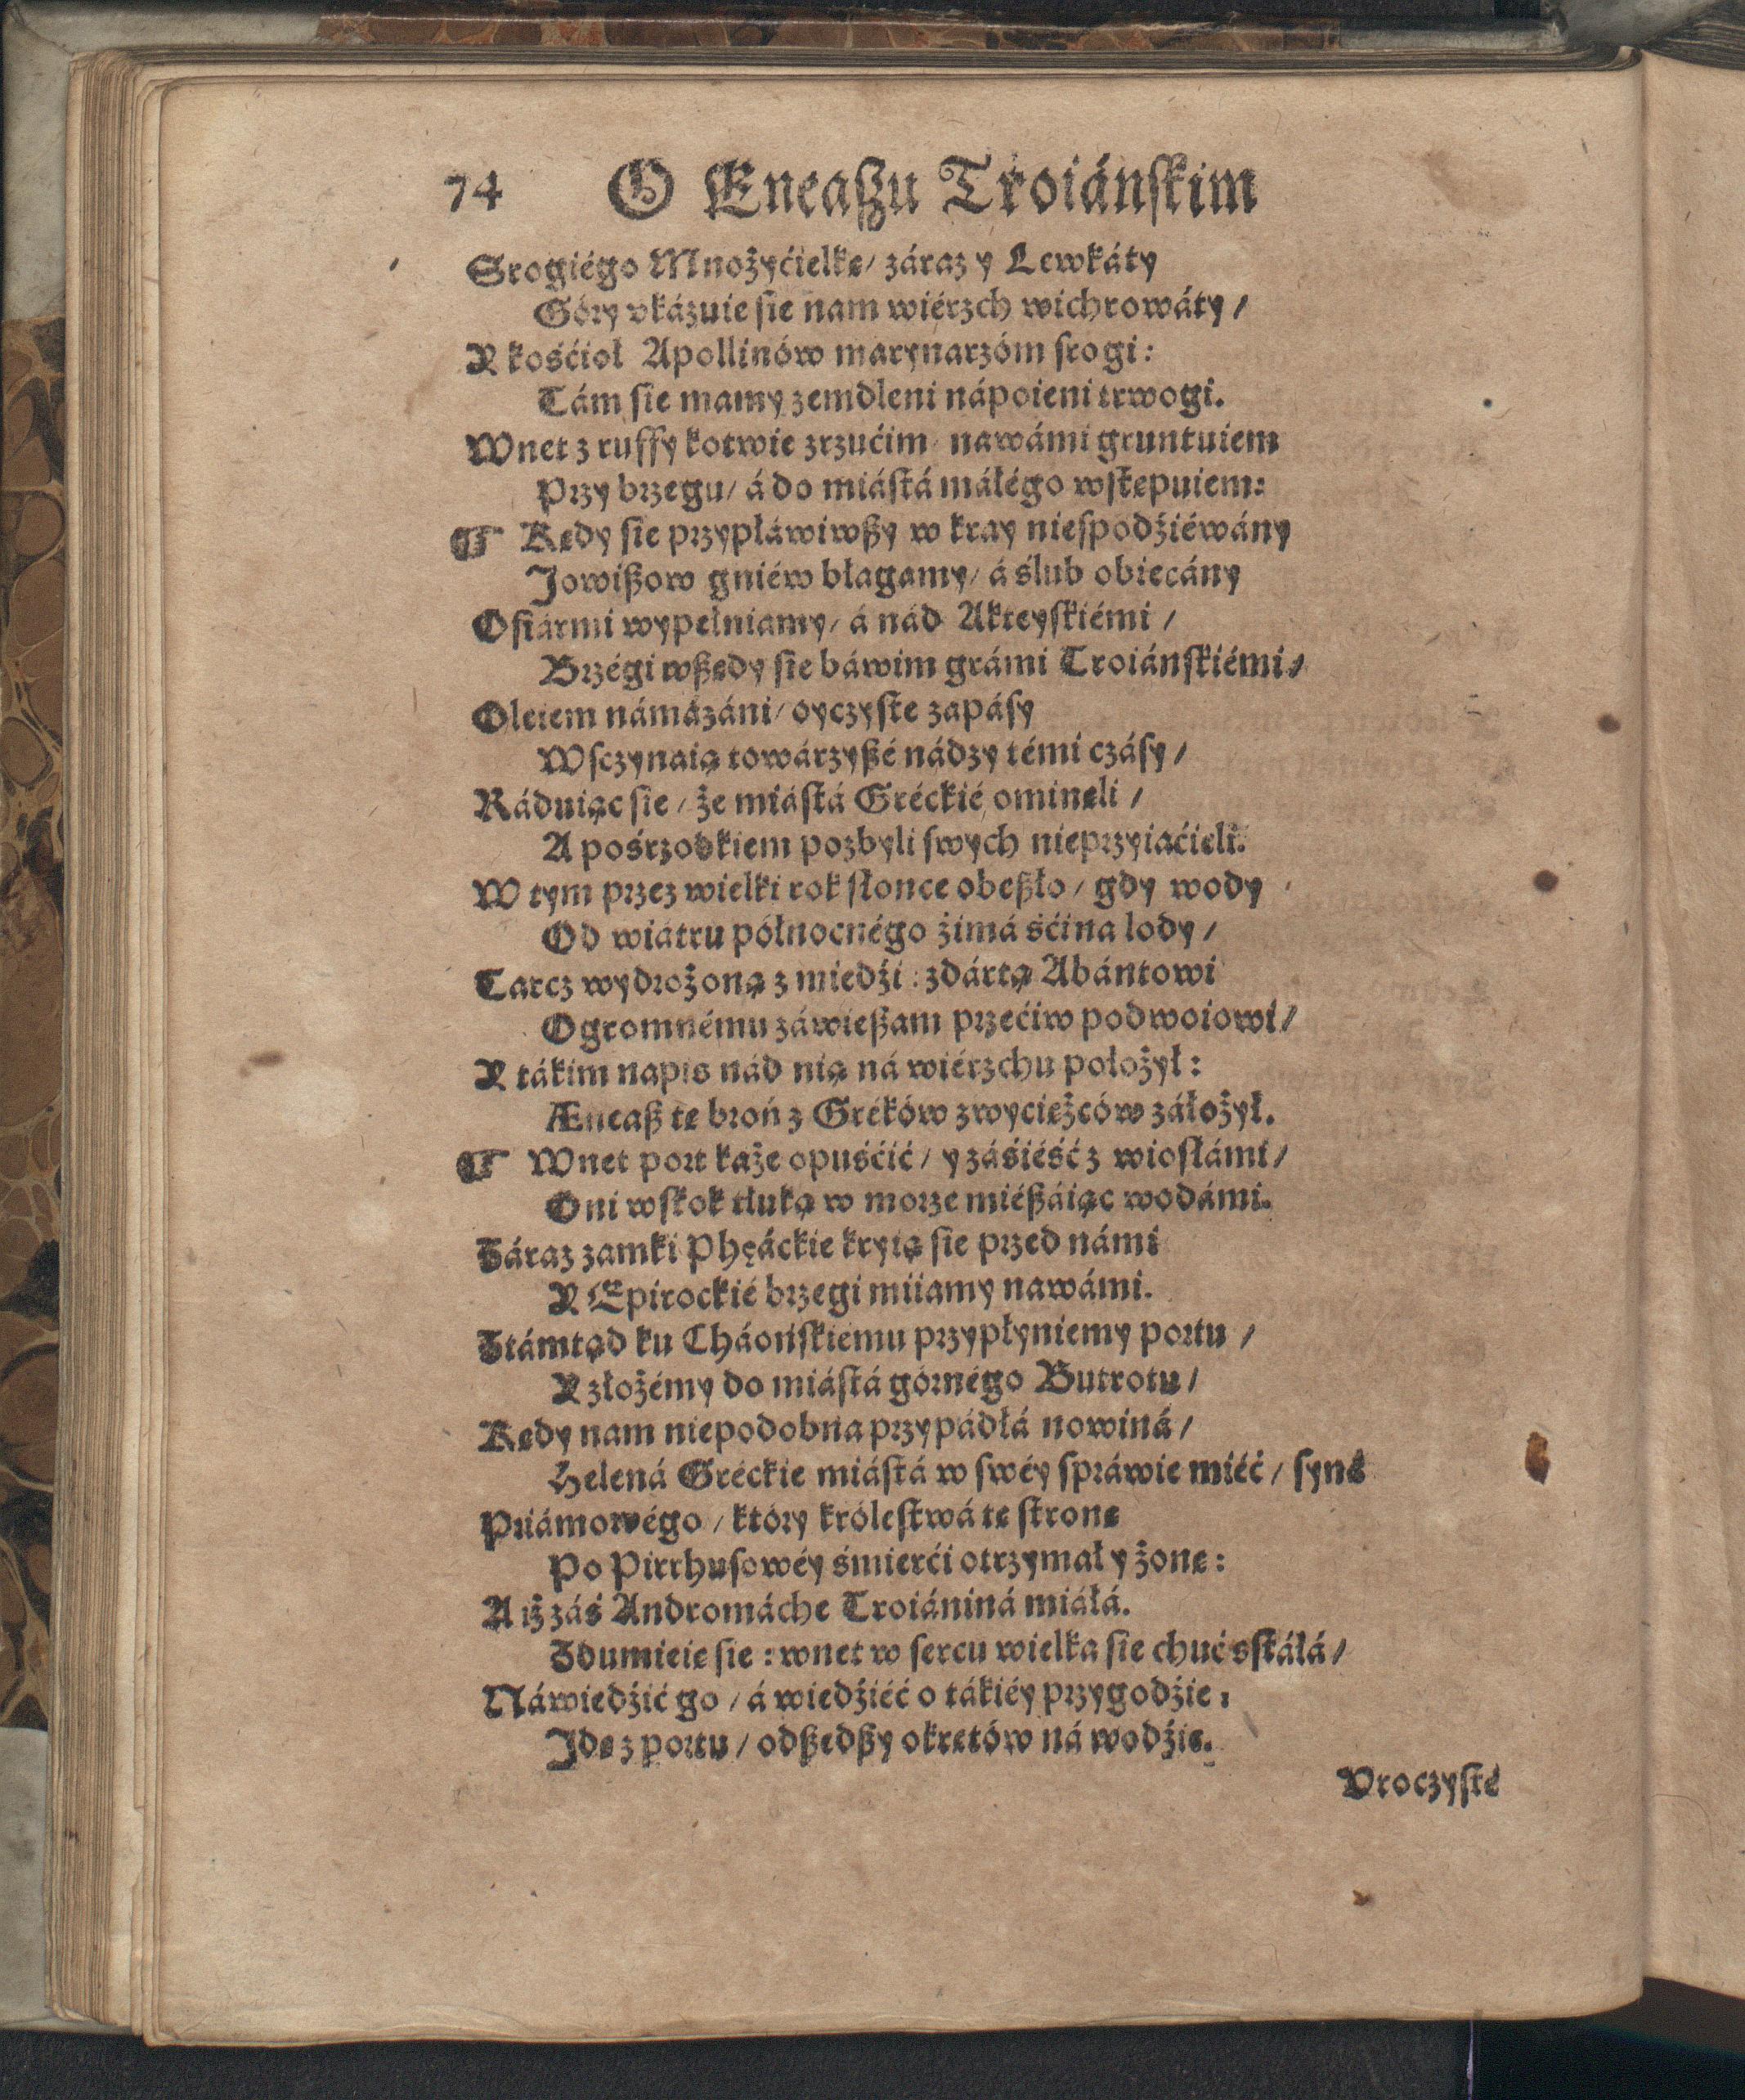 74 O Eneaſzu Troiáńſkim
Srogiégo Mnożyćielkę/ záraz y Lewkáty
Góry vkázuie ſie nam wiérzch wichrowáty/
Y kośćioł Apollinów marynarzóm ſrogi:
Tám ſie mamy zemdleni nápoieni trwogi.
Wnet z ruffy kotwie zrzućim/ nawámi gruntuiem
Przy brzegu/ á do miáſtá máłégo wſtępuiem:
☞ Kędy ſie przypłáwiwſzy w kray nieſpodźiéwány
Jowiſzow gniéw błagamy/ á ślub obiecány
Ofiármi wypełniamy/ á nád Akteyſkiémi/
Brzégi wſzędy ſie báwim grámi Troiáńſkiémi/
Oleiem námázáni/ oyczyſte zapáſy
Wſczynaią towárzyſzé nádzy témi czáſy/
Ráduiąc ſie/ że miáſtá Gréckié ominęli/
A pośrzodkiem pozbyli ſwych nieprzyiaćieli.
W tym przez wielki rok słonce obeſzło/ gdy wody
Od wiátru północnégo źimá śćina lody/
Tarcz wydrożoną z miedźi: zdártą Abántowi
Ogromnému záwieſzam przećiw podwoiowi/
Y tákim napis nád nią ná wiérzchu położył:
Æneaſz tę broń z Gréków zwyciężców záłożył.
☞ Wnet port każę opuśćić/ y záśiéść z wiosłámi/
Oni wſkok tłuką w morze miéſzáiąc wodámi.
Záraz zamki Phęáckie kryią ſie przed námi
Y Epirockié brzegi miiamy nawámi.
Ztámtąd ku Cháońſkiemu przypłyniemy portu/
Y złożémy do miáſtá górnégo Butrotu/
Kędy nam niepodobna przypádłá nowiná/
Helená Gréckie miáſtá w ſwéy ſpráwie miéć/ ſyná
Priámowégo/ który króleſtwá tę ſtronę
Po Pirrhuſowéy śmierći otrzymał y żonę:
A iż záś Andromáche Troiániná miáłá.
Zdumieię ſie: wnet w ſercu wielka ſie chuć sſtáłá/
Náwiedźić go/ á wiedźiéć o tákiéy przygodźie:
Jdę z portu/ odſzedſzy okrętów ná wodźie.
Vroczyſté